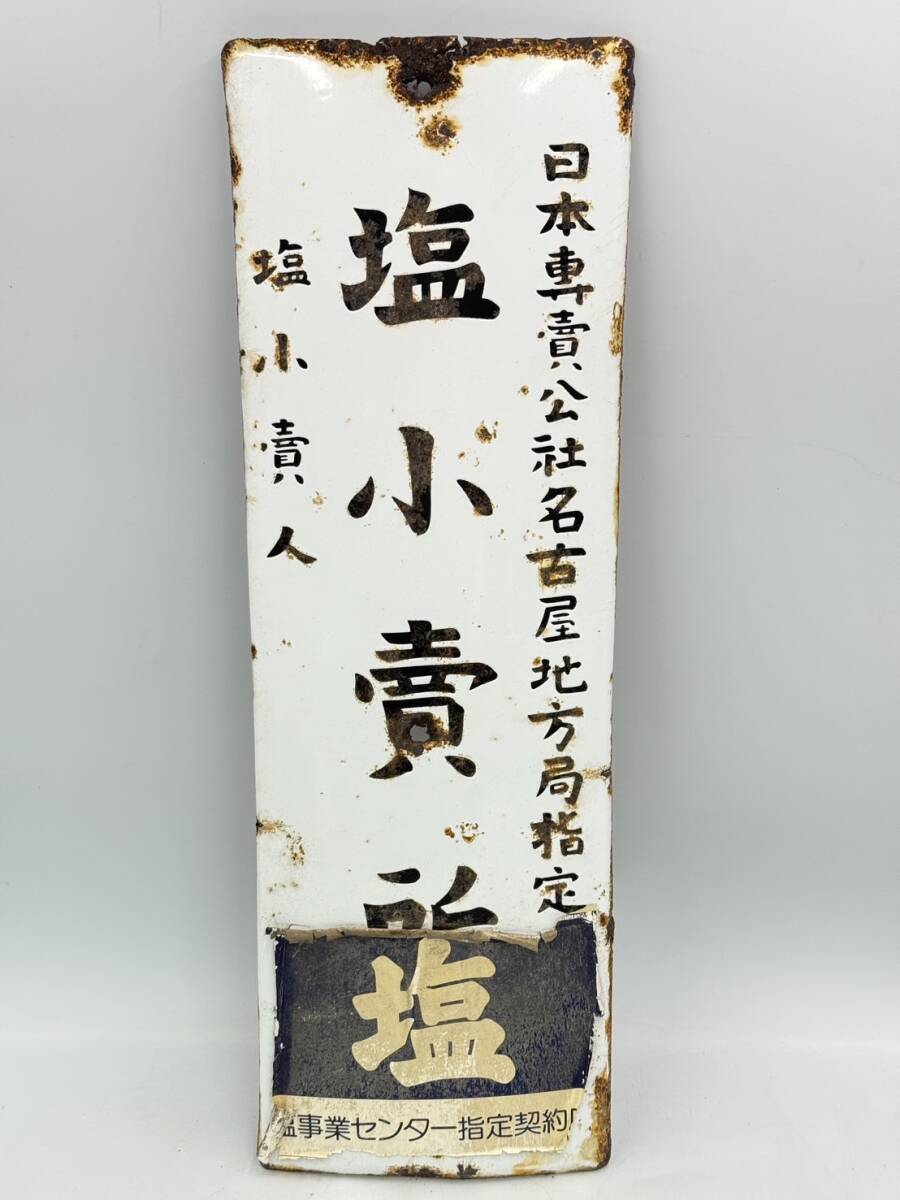 日本専賣公社名古屋地方局指定
塩小賣所
塩小賣人
塩
塩事業センター指定契約